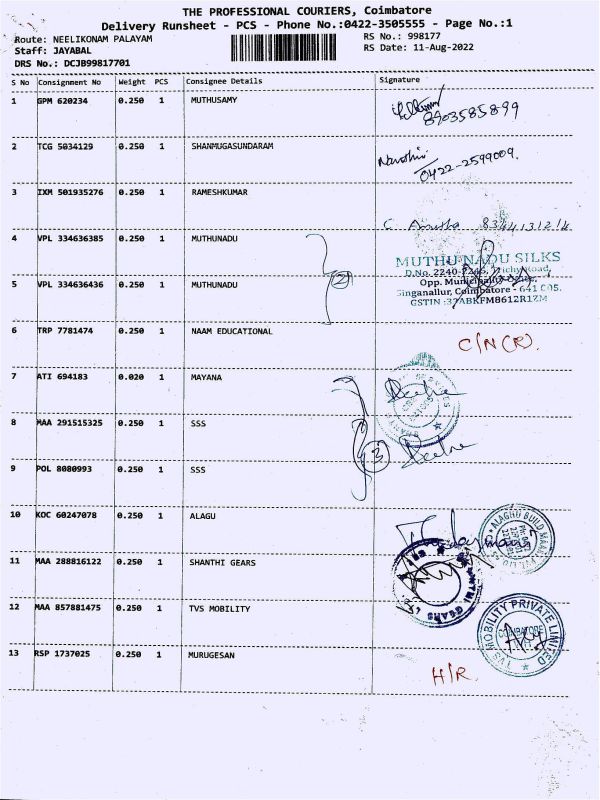 THE PROFESSIONAL COURIERS, Coimbatore
Delivery Runsheet - PCS - Phone No.:0422-3505555 - Page No.:1
Route: NEELIKONAM PALAYAM
RS No.: 998177
Staff: JAYABAL
RS Date: 11-Aug-2022
DRS No.: DCJB99817701
S No Consignment No Weight PCS Consignee Details Signature
1 GPM 620234 0.250 1 MUTHUSAMY
8903585899
2 TCG 5034129 0.250 1 SHANMUGASUNDARAM
0422-2599009.
3 IXM 501935276 0.250 1 RAMESHKUMAR
C 8344131214
4 VPL 334636385 0.250 1 MUTHUNADU
MUTHU NADU SILKS
D.No. 2240-2246, Trichy Road,
Opp. Municipality Office,
5 VPL 334636436 0.250 1 MUTHUNADU
2
Singanallur, Coimbatore - 641 005.
GSTIN :33ABKFM8612R1ZM
6 TRP 7781474 0.250 1 NAAM EDUCATIONAL
C/N(R).
7 ATI 694183 0.020 1 MAYANA
8 MAA 291515325 0.250 1 SSS
3
9 POL 8080993 0.250 1 SSS
10 KOC 60247078 0.250 1 ALAGU
ALAGHU BUILD
11 MAA 288816122 0.250 1 SHANTHI GEARS
12 MAA 857881475 0.250 1 TVS MOBILITY
TVS MOBILITY PRIVATE LIMITED
COIMBATORE
13 RSP 1737025 0.250 1 MURUGESAN
H/R.